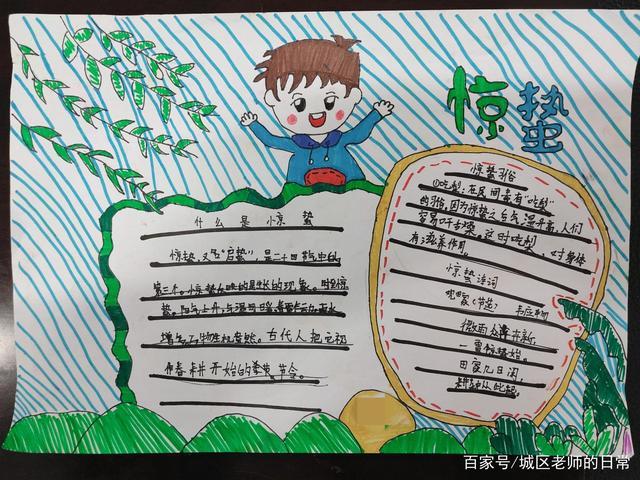 惊蛰
什么是惊蛰
惊蛰,又名"启蛰",是二十四节气中的
第三个。惊蛰反映的是
增多,万物生机盎然。古代人把它视
为春耕开始的
惊蛰习俗
①吃梨:在民间素有"吃梨"
的习俗,因为惊蛰之后气温升高,人们
容易口干舌燥。这时吃梨,对身体
有滋养作用。
惊蛰诗词
观田家(节选) 韦应物
微雨众卉新,
一雷惊蛰始。
田家几日闲,
耕种从此起。
百家号/城区老师的日常